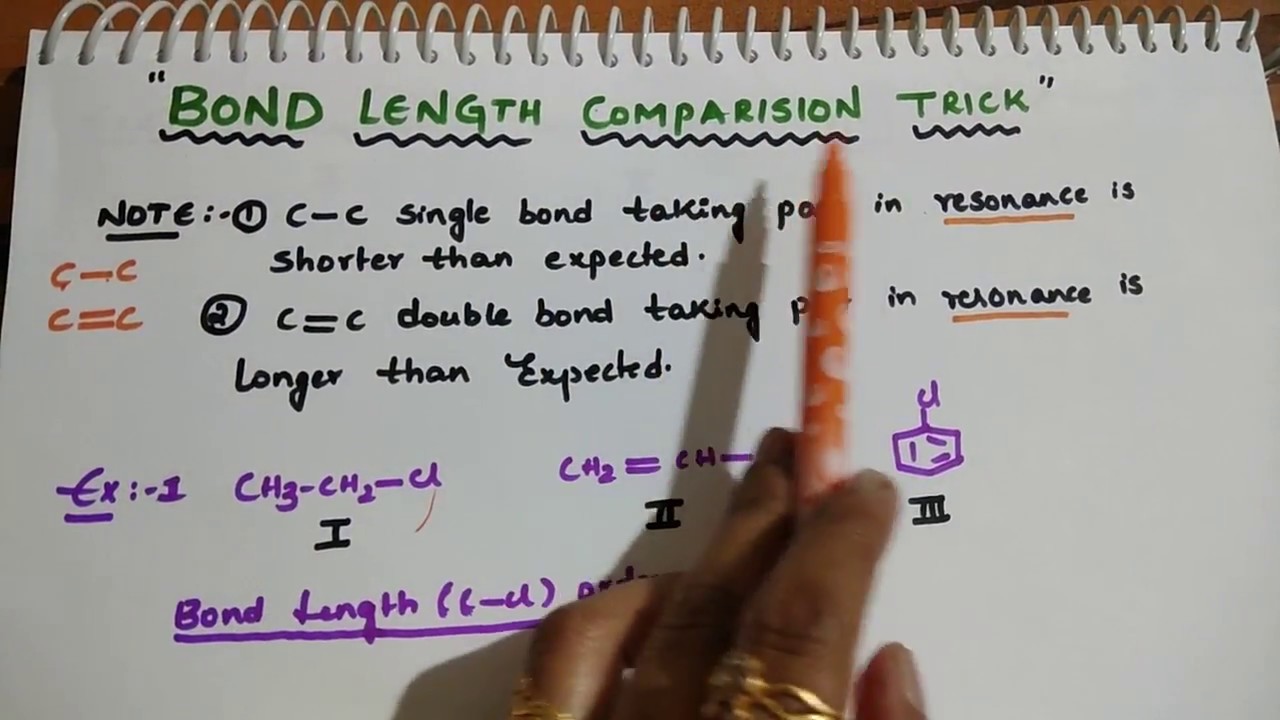 "BOND LENGTH COMPARISION TRICK"
NOTE:-① C-C single bond taking in resonance is
shorter than expected.
C-C
C=C
② C=C double bond taking in resonance is
Longer than Expected.
Cl
Ex:-1 CH3-CH2-Cl CH2=CH-
I II III
Bond Length (C-Cl)